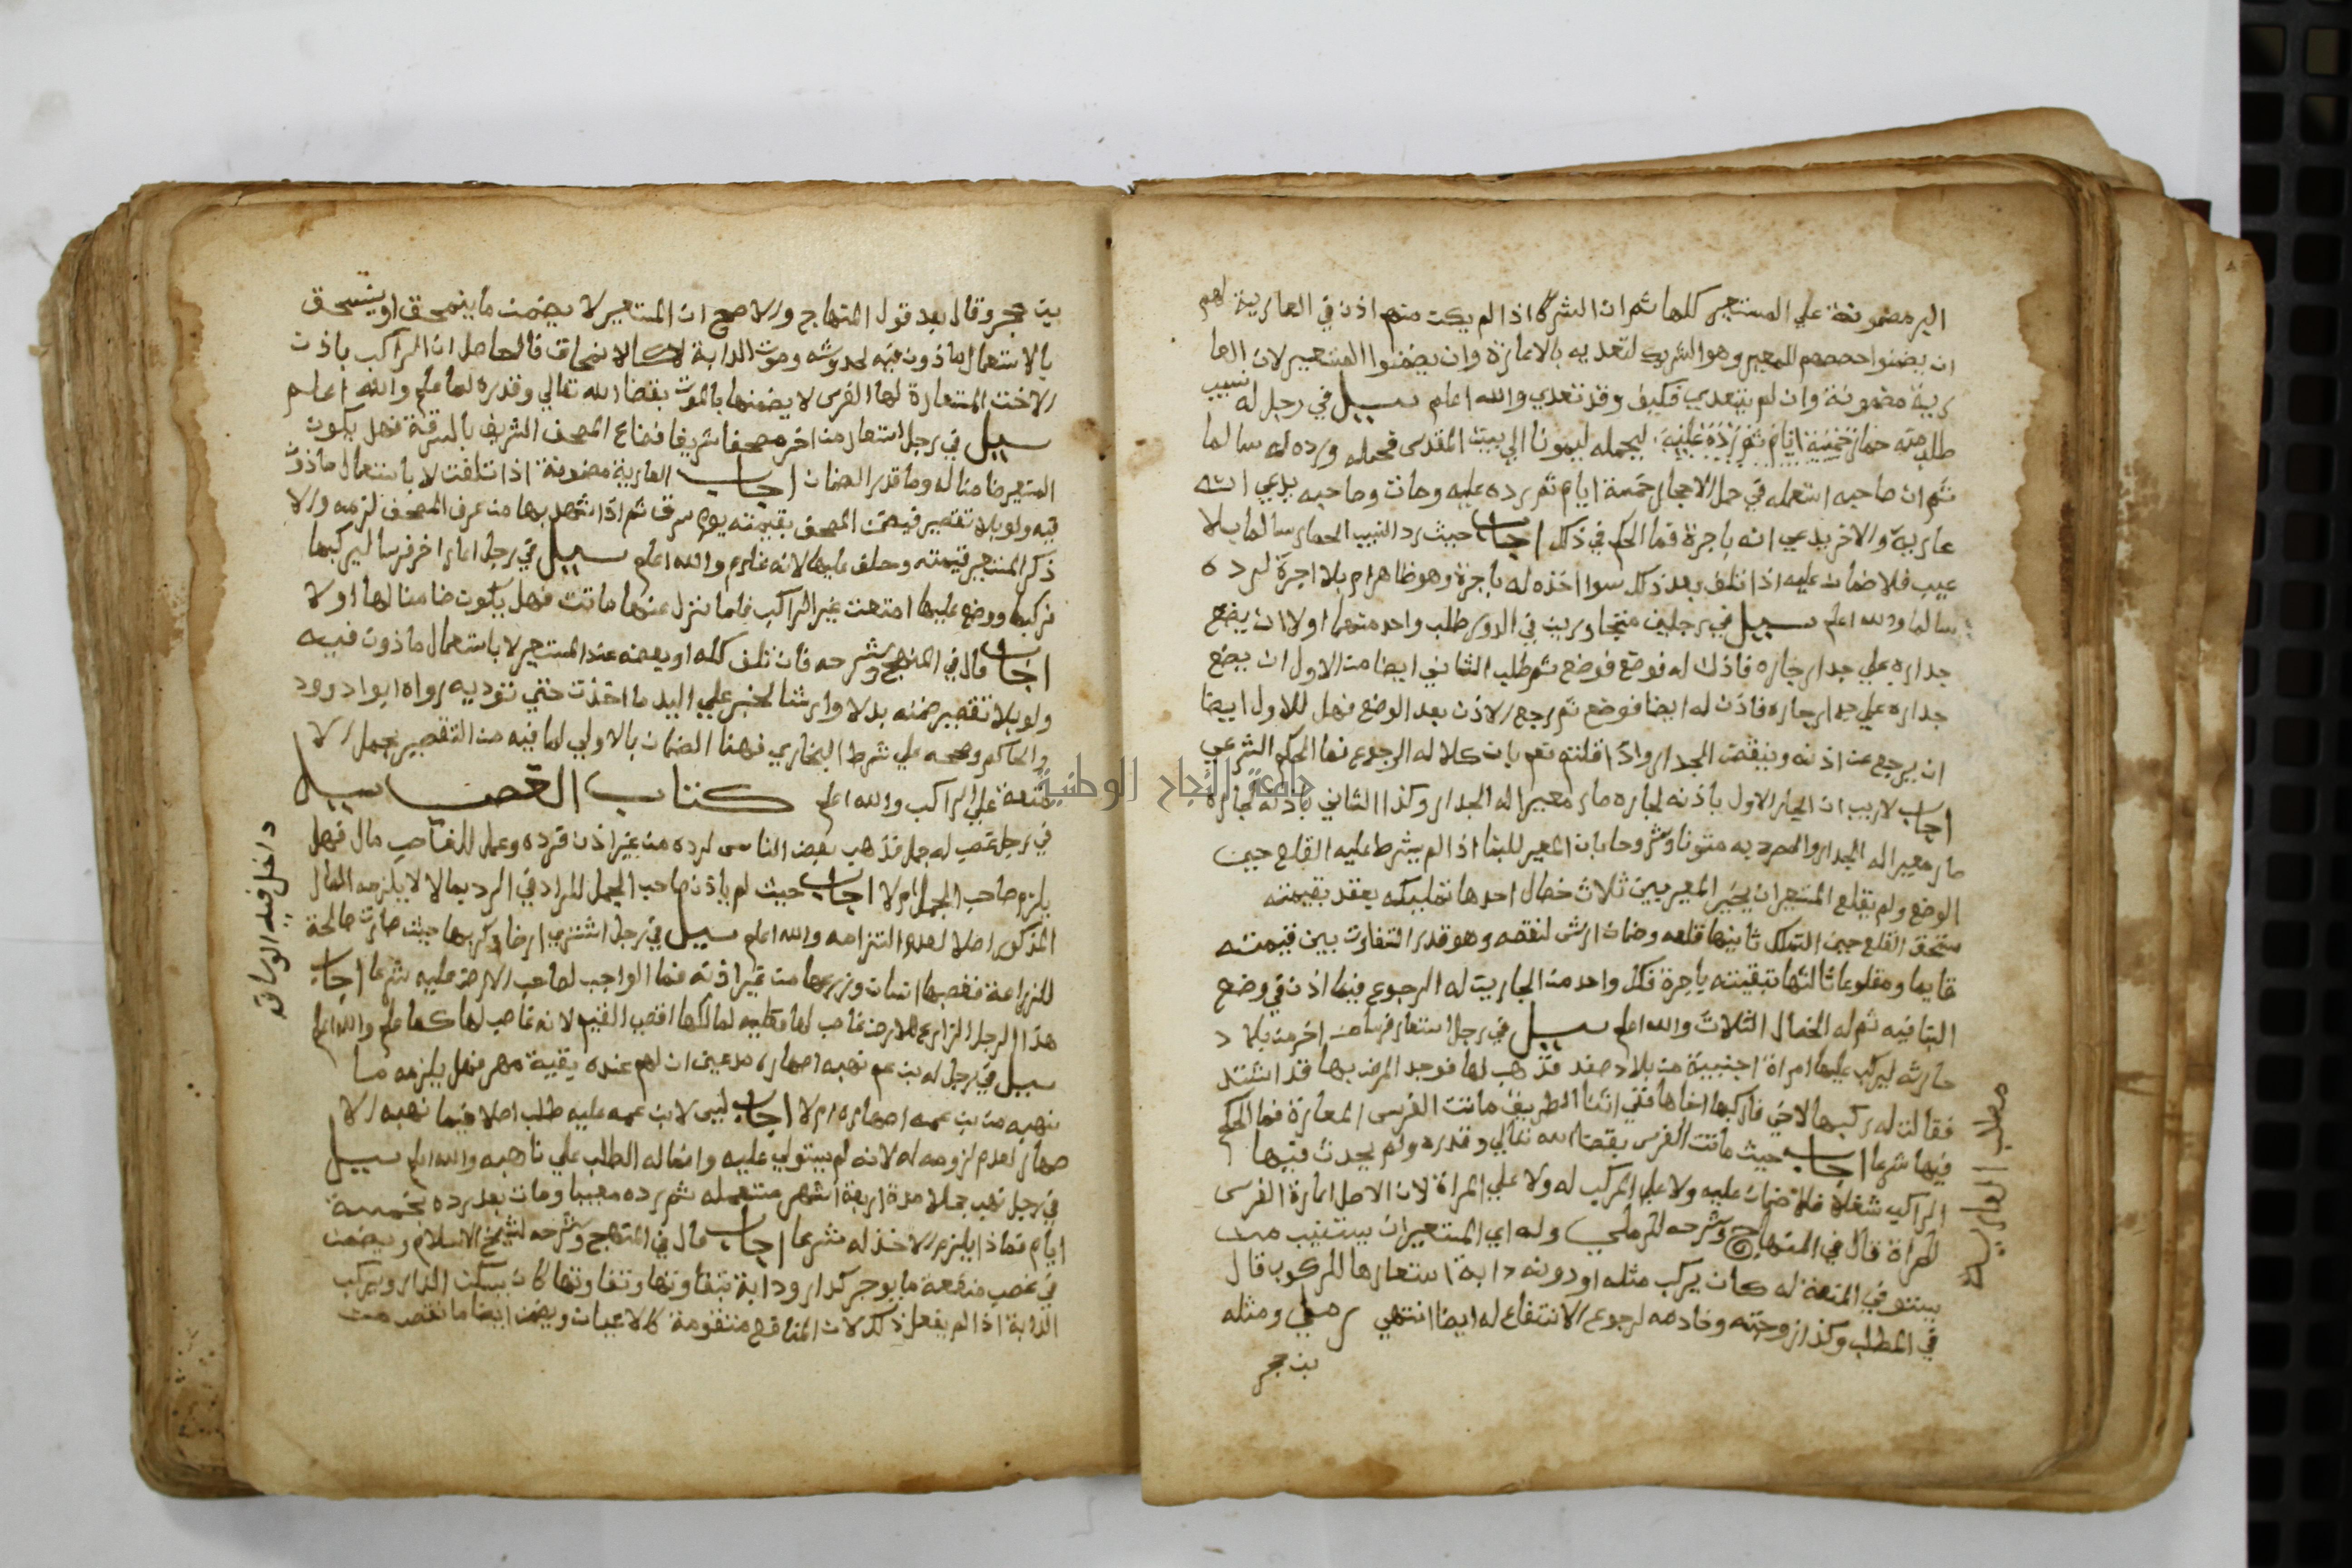 البر مضمونة علي المستعير كلها ثم ان الشركا اذا لم يكن منهم اذن في العارية لهم
ان يضمنوا حصصهم للمعير وهو الشريك لتعديه بالاعارة وان يضمنوا المستعير لان العا
رية مضمونة وان لم يتعدي فكيف وقد تعدي والله اعلم سيل في رجل له نسيب
طلب منه حمار خمسة ايام ثم رده عليه ليحمله ليمونا الي بيت المقدس فحمله ورده له سالما
ثم ان صاحبه استعمله في حمل الاحجار خمسة ايام ثم رده عليه ومات وصاحبه يدعي انه
عارية والاخر يدعي انه باجرة فما الحكم في ذلك اجاب حيث رد النسيب الحمار سالما بلا
عيب فلا ضمان عليه اذا تلف بعد ذلك سوا اخذه له باجرة وهو ظاهر ام بلا اجرة لرده
سالما والله اعلم سيل في رجلين متجاورين في الدور طلب واحد منهما اولا ان يضع
جداره علي جدار جاره فاذن له فوضع ثم طلب الثاني ايضا من الاول ان يضع
جداره علي جدار جاره فاذن له ايضا فوضع ثم رجع الاذن بعد الوضع فهل للاول ايضا
ان يرجع عن اذنه وينقض الجدار واذا قلتم نعم بان كلا له الرجوع فما الحكم الشرعي
اجاب لا ريب ان الجار الاول باذنه لجاره صار معيرا له الجدار وكذا الثاني باذنه لجاره
صار معيرا له الجدار والمصرح به متونا وشروحا بان المعير للبنا اذا لم يشرط عليه القلع حين
الوضع ولم يقلع المستعير ان يخير المعير بين ثلاث خصال احدها تمليكه بعقد بقيمته
مستحق القلع حين التملك ثانيها قلعه وضمان ارش لنقصه وهو قدر التفاوت بين قيمته
قايما ومقلوعا ثالثها تبقيته باجرة فكل واحد من الجارين له الرجوع فيما اذن في وضع
البنا فيه ثم له الخصال الثلاث والله اعلم سيل في رجل استعار فرسا من اخر من بلاد
حارثه ليركب عليها امراة اجنبية من بلاد صفد فذهب لها فوجد المرض بها قد اشتد
فقالت له ركبها لاخي فاركبها اخاها ففي اثنا الطريق ماتت الفرس المعارة فما الحكم
فيها شرعا اجاب حيث ماتت الفرس بقضاء الله تعالي وقدره ولم يحدث فيها
الراكب شغلا فلا ضمان عليه ولا علي المركب له ولا علي المراة لان الاصل اعارة الفرس
للمراة قال في المنهاج وشرحه للرملي وله اي المستعير ان يستنيب من
يستوفي المنفعة له كان يركب مثله او دونه دابة استعارها للركوب قال
في المطلب وكذا زوجته وخادمه لرجوع الانتفاع له ايضا انتهي رملي ومثله
بن حجر
مطلب العارية
بن حجر وقال بعد قول المنهاج والاصح ان المستعير لا يضمن ما ينمحق او ينسحق
بالاستعمال ماذون فيه لحدوثه وموت الدابة كالانمحاق فالحاصل ان الراكب باذن
الاخت المستعارة لها الفرس لا يضمنها بالموت بقضا الله تعالي وقدره لما علم والله اعلم
سيل في رجل استعار من اخر مصحفا شريفا فضاع المصحف الشريف بالسرقة فهل يكون
المستعير ضامنا له وما قدر الضمان اجاب العارية مضمونة اذا تلفت لا باستعمال ماذون
فيه ولو بلا تقصير فيضمن المصحف بقيمته يوم سرق ثم اذا شهد بها من عرف المصحف لزمه والا
ذكر المستعير قيمته وحلف عليها لانه غارم والله اعلم سيل في رجل اعار اخر فرسا ليركبها
فركبها ووضع عليها امتعت غير الراكب فلما نزل عنها ماتت فهل يكون ضامنا لها او لا
اجاب قال في المنهج وشرحه فان تلف كله او بعضه عند المستعير لا باستعمال ماذون فيه
ولو بلا تقصير ضمنه بدلا وارشا لخبر علي اليد ما اخذت حتي توديه رواه ابو اداوود
والحاكم وصححه علي شرط البخاري فهنا الضمان بالاولي لما فيه من التقصير بحمل الا
متعة علي الراكب والله اعلم كتاب الغصب سيل
في رجل غصب له جمل فذهب بعض الناس لرده من غير اذن فرده وعمل للغاصب مال فهل
يلزم صاحب الجمل ام لا اجاب حيث لم ياذن صاحب الجمل للمراد في الرد بمالا لا يلزمه المال
المذكور اصلا لعدم التزامه والله اعلم سيل في رجل اشتري ارضا وكربها حيث صارت صالحة
للزراعة فغصبها انسان وزرعها من غير اذنه فما الواجب لصاحب الارض عليه شرعا اجاب
هذا الرجل الزارع للارض غاصب لها فعليه لمالكها اقصي القيم لانه غاصب لها كما علم والله اعلم
سيل في رجل له بن عم نهبه اصهاره مدعين ان لهم عنده بقية مهر فهل يلزمه ما
نهبه من بن عمه اصهاره ام لا اجاب ليس لابن عمه عليه طلب اصلا فيما نهبه الا
صهار لعدم لزومه له لانه لم يستولي عليه وانما له الطلب علي ناهبه والله اعلم سيل
في رجل نهب جملا مدة اربعة اشهر مستعمله ثم رده معيبا ومات بعد رده بخمسة
ايام فماذا يلزم الاخذ له شرعا اجاب قال في المنهج وشرحه لشيخ الاسلام ويضمن
في غصب منفعة ما يوجر كدار ودابة بتفاوتها وتفاوتها كان يسكن الدار ويركب
الدابة اذا لم يفعل ذلك لان المنافع متقومة كالاعيان ويضمن ايضا ما نقص من
داخل فيه الوراقه
جامعة النجاح الوطنية